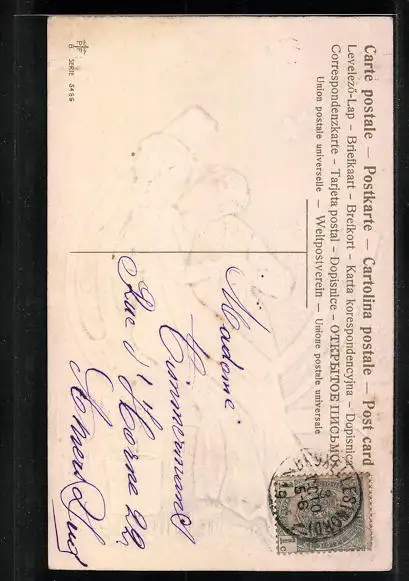 Carte postale — Postkarte — Cartolina postale — Post card
Levelező-Lap — Briefkaart — Brefkort — Karta korespondencyjna — Dopisnica
Correspondenzkarte — Tarjeta postal — Dopisnice — ОТКРЫТОЕ ПИСЬМО
Union postale universelle — Weltpostverein — Unione postale universale
PFB
SERIE 5486
Madame
Zimmermans
Rue d' Horne 22